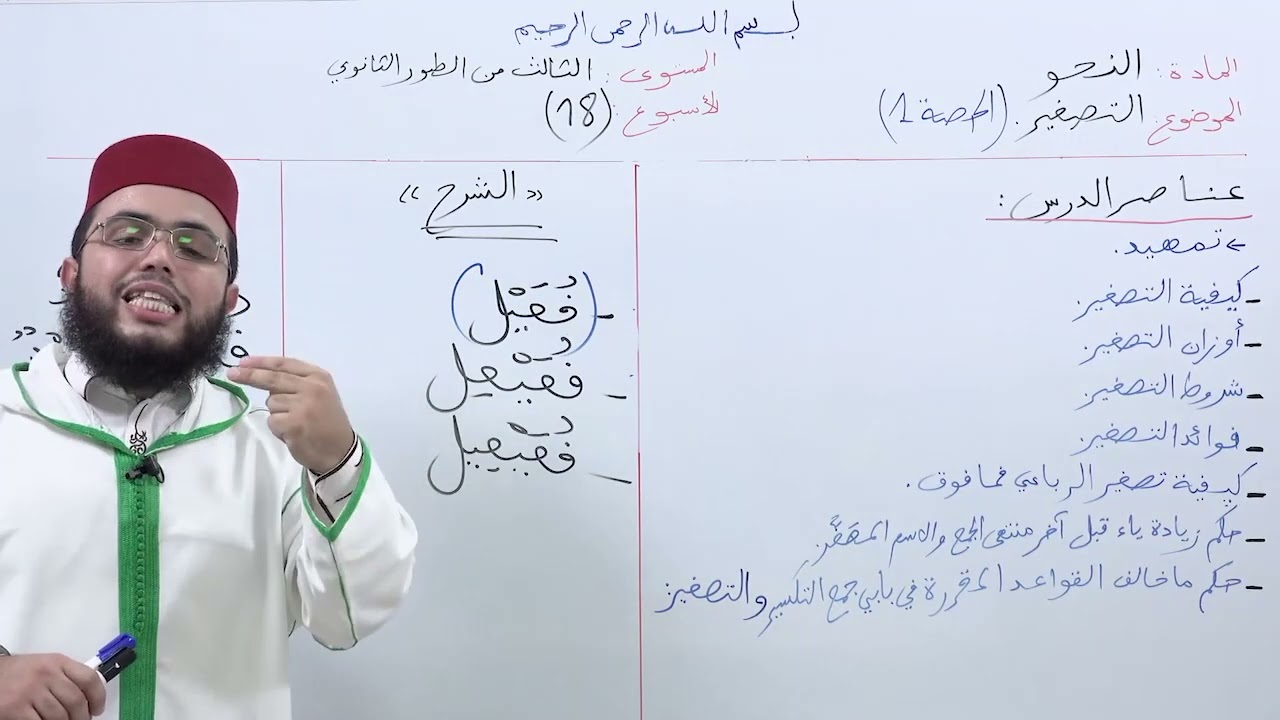 بسم الله الرحمن الرحيم
المادة: النحو
المستوى: الثالث من الطور الثانوي
الموضوع: التصغير. (الحصة 1)
الأسبوع: (18)
عناصر الدرس:
← تمهيد.
- كيفية التصغير.
- أوزان التصغير.
- شروط التصغير.
- فوائد التصغير.
- كيفية تصغير الرباعي فما فوق.
- حكم زيادة ياء قبل آخر منتهى الجمع والاسم المصَغَّر.
- حكم ما خالف القواعد المقررة في بابي جمع التكسير والتصغير
«الشرح»
- (فُعَيْل)
- فُعَيْعِل
- فُعَيْعِيل